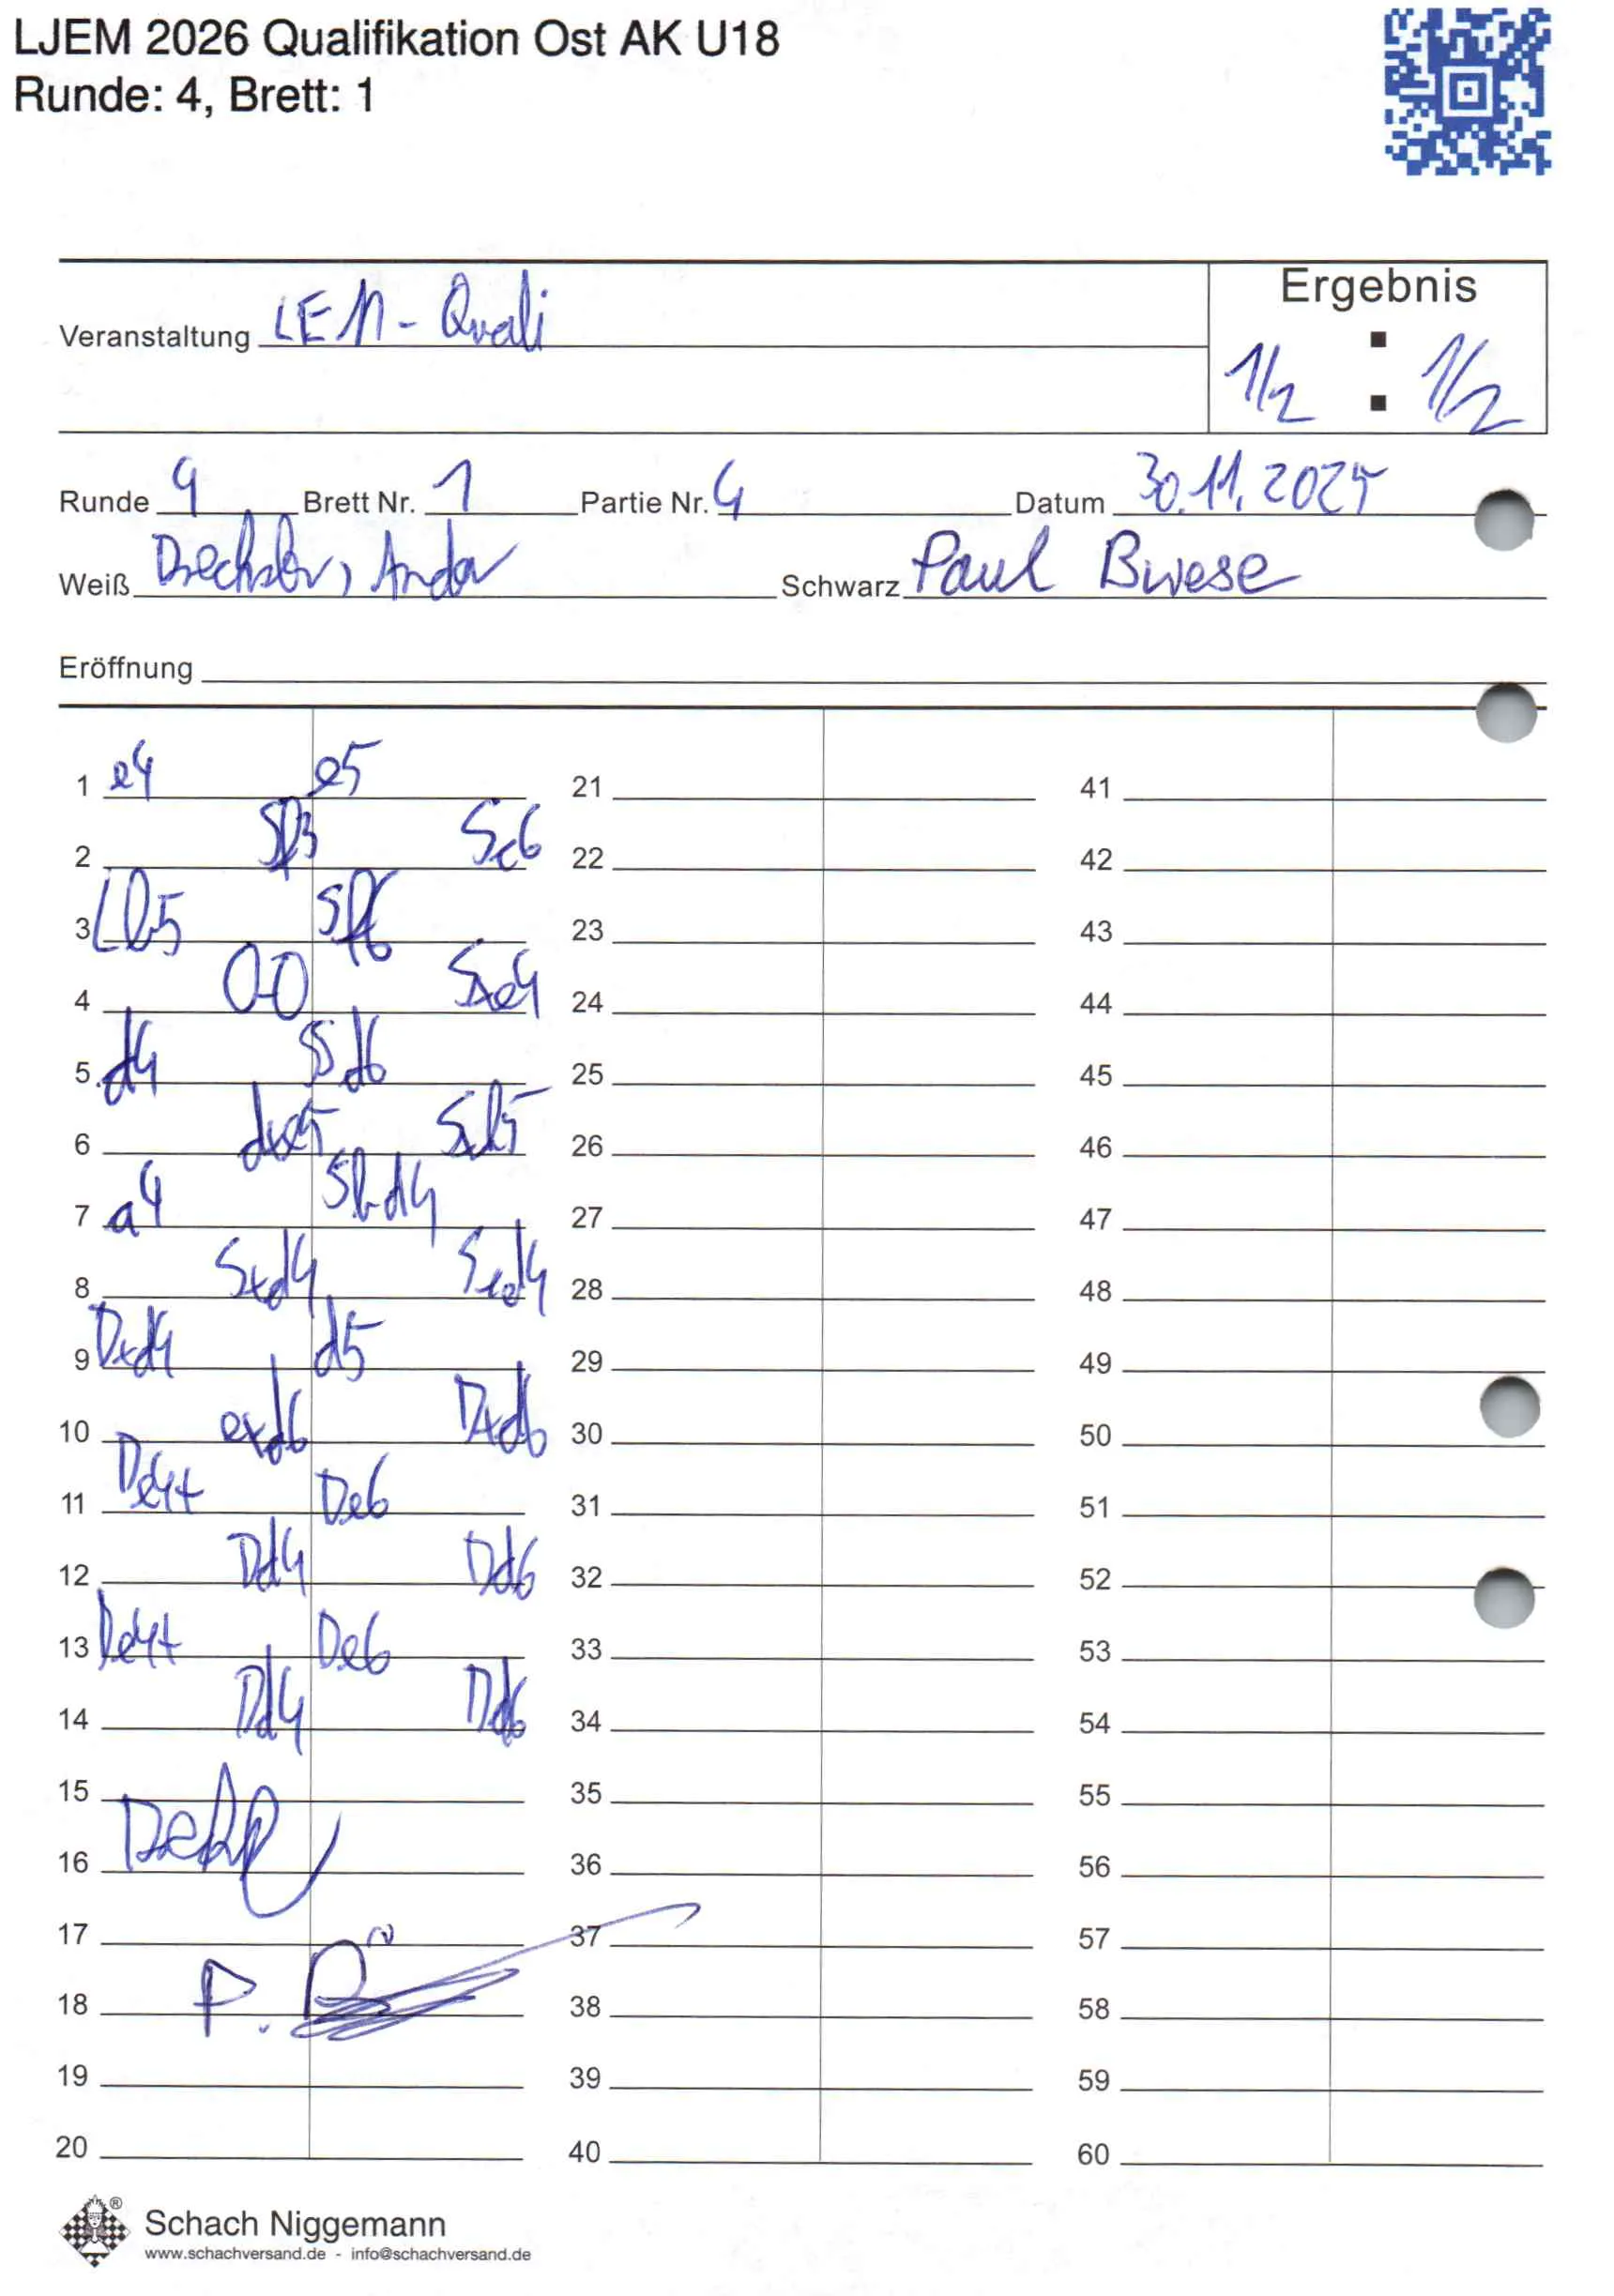 LJEM 2026 Qualifikation Ost AK U18
Runde: 4, Brett: 1
Ergebnis
Veranstaltung LEM - Quali
1/2 : 1/2
Runde 4 Brett Nr. 1 Partie Nr. 4 Datum 30.11.2025
Weiß Drechsler, Schwarz Paul
Eröffnung
1 e4 e5 21 41
2 Sf3 Sc6 22 42
3 Lb5 Sf6 23 43
4 0-0 Sxe4 24 44
5 d4 Sd6 25 45
6 dxe5 Sxb5 26 46
7 a4 Sbd4 27 47
8 Sxd4 Sxd4 28 48
9 Dxd4 d5 29 49
10 exd6 Dxd6 30 50
11 De4+ De6 31 51
12 Dd4 Dd6 32 52
13 De4+ De6 33 53
14 Dd4 Dd6 34 54
15 35 55
16 36 56
17 37 57
18 P. 38 58
19 39 59
20 40 60
Schach Niggemann
www.schachversand.de - info@schachversand.de